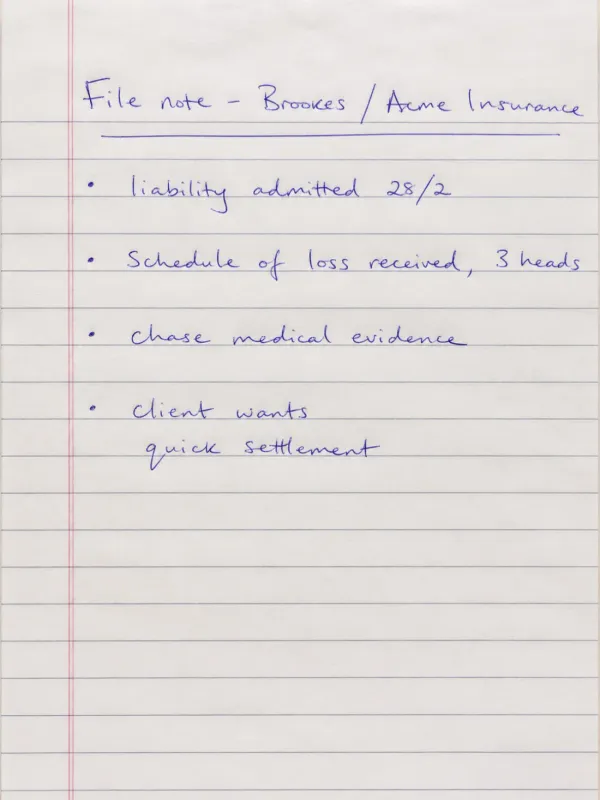 File note - Brookes / Acme Insurance
• liability admitted 28/2
• Schedule of loss received, 3 heads
• chase medical evidence
• client wants
quick settlement